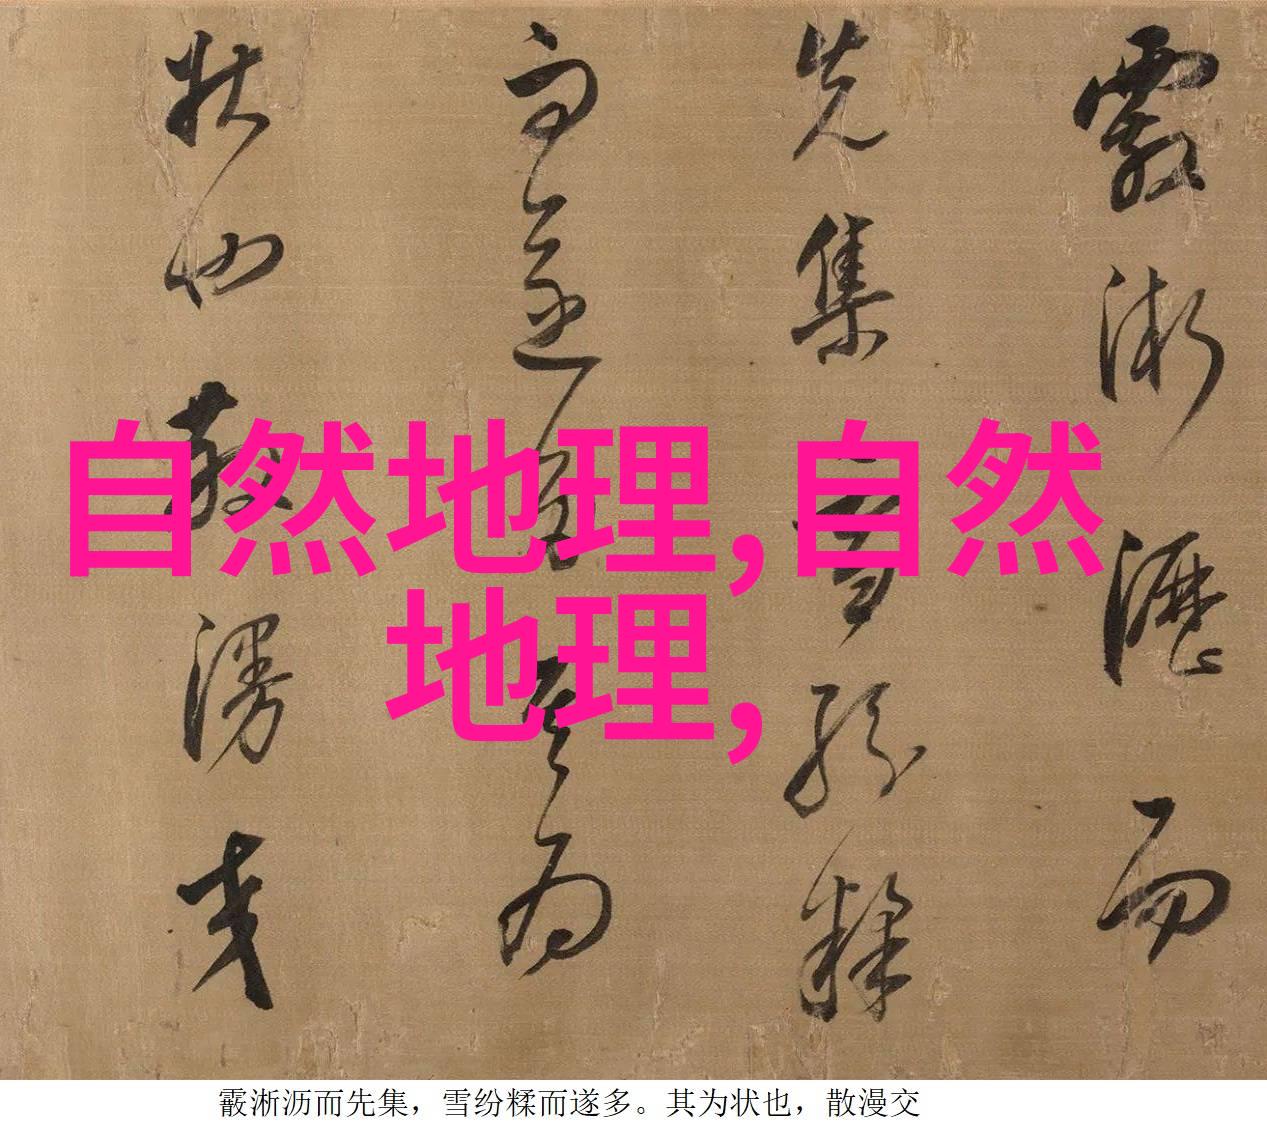 霰淅沥而
先集雪纷糅
而遂多其为
状也散漫交
自然地理,自然
地理,
霰淅沥而先集，雪纷糅而遂多。其为状也，散漫交